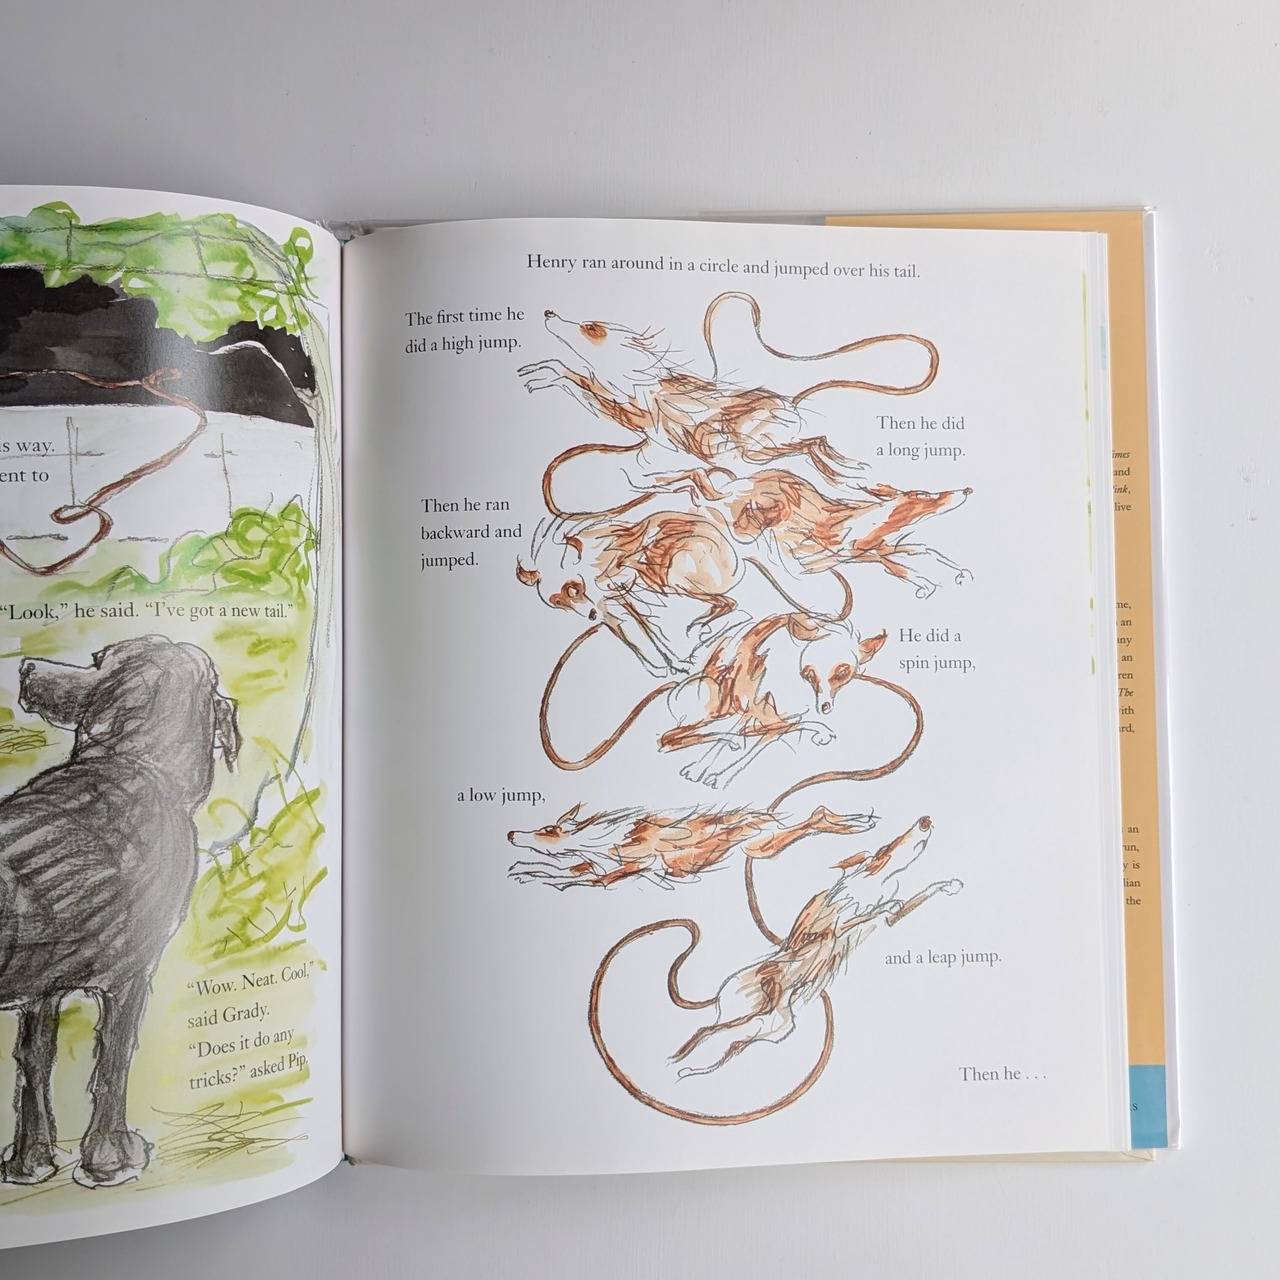 is way.
ent to
“Look,” he said. “I’ve got a new tail.”
“Wow. Neat. Cool,”
said Grady.
“Does it do any
tricks?” asked Pip.
Henry ran around in a circle and jumped over his tail.
The first time he
did a high jump.
Then he did
a long jump.
Then he ran
backward and
jumped.
He did a
spin jump,
a low jump,
and a leap jump.
Then he . . .
imes
and
ink,
live
me,
an
any
an
ren
The
with
ard,
an
run,
y is
lian
the